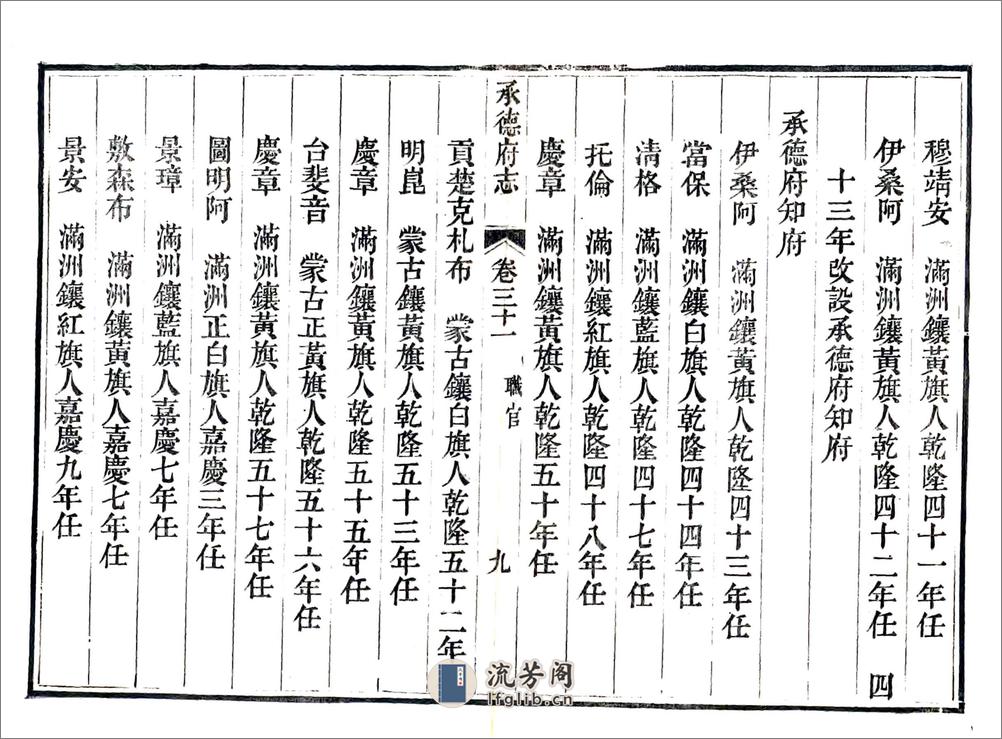 穆靖安 滿洲鑲黃旗人乾隆四十一年任
伊桑阿 滿洲鑲黃旗人乾隆四十二年任 四
十三年改設承德府知府
承德府知府
伊桑阿 滿洲鑲黃旗人乾隆四十三年任
當保 滿洲鑲白旗人乾隆四十四年任
清格 滿洲鑲藍旗人乾隆四十七年任
托倫 滿洲鑲紅旗人乾隆四十八年任
慶章 滿洲鑲黃旗人乾隆五十年任
承德府志 卷三十一 職官 九
貢楚克札布 蒙古鑲白旗人乾隆五十二年
明崑 蒙古鑲黃旗人乾隆五十三年任
慶章 滿洲鑲黃旗人乾隆五十五年任
台斐音 蒙古正黃旗人乾隆五十六年任
慶章 滿洲鑲黃旗人乾隆五十七年任
圖明阿 滿洲正白旗人嘉慶三年任
景璋 滿洲鑲藍旗人嘉慶七年任
敷森布 滿洲鑲黃旗人嘉慶七年任
景安 滿洲鑲紅旗人嘉慶九年任
流芳阁
lfglib.cn